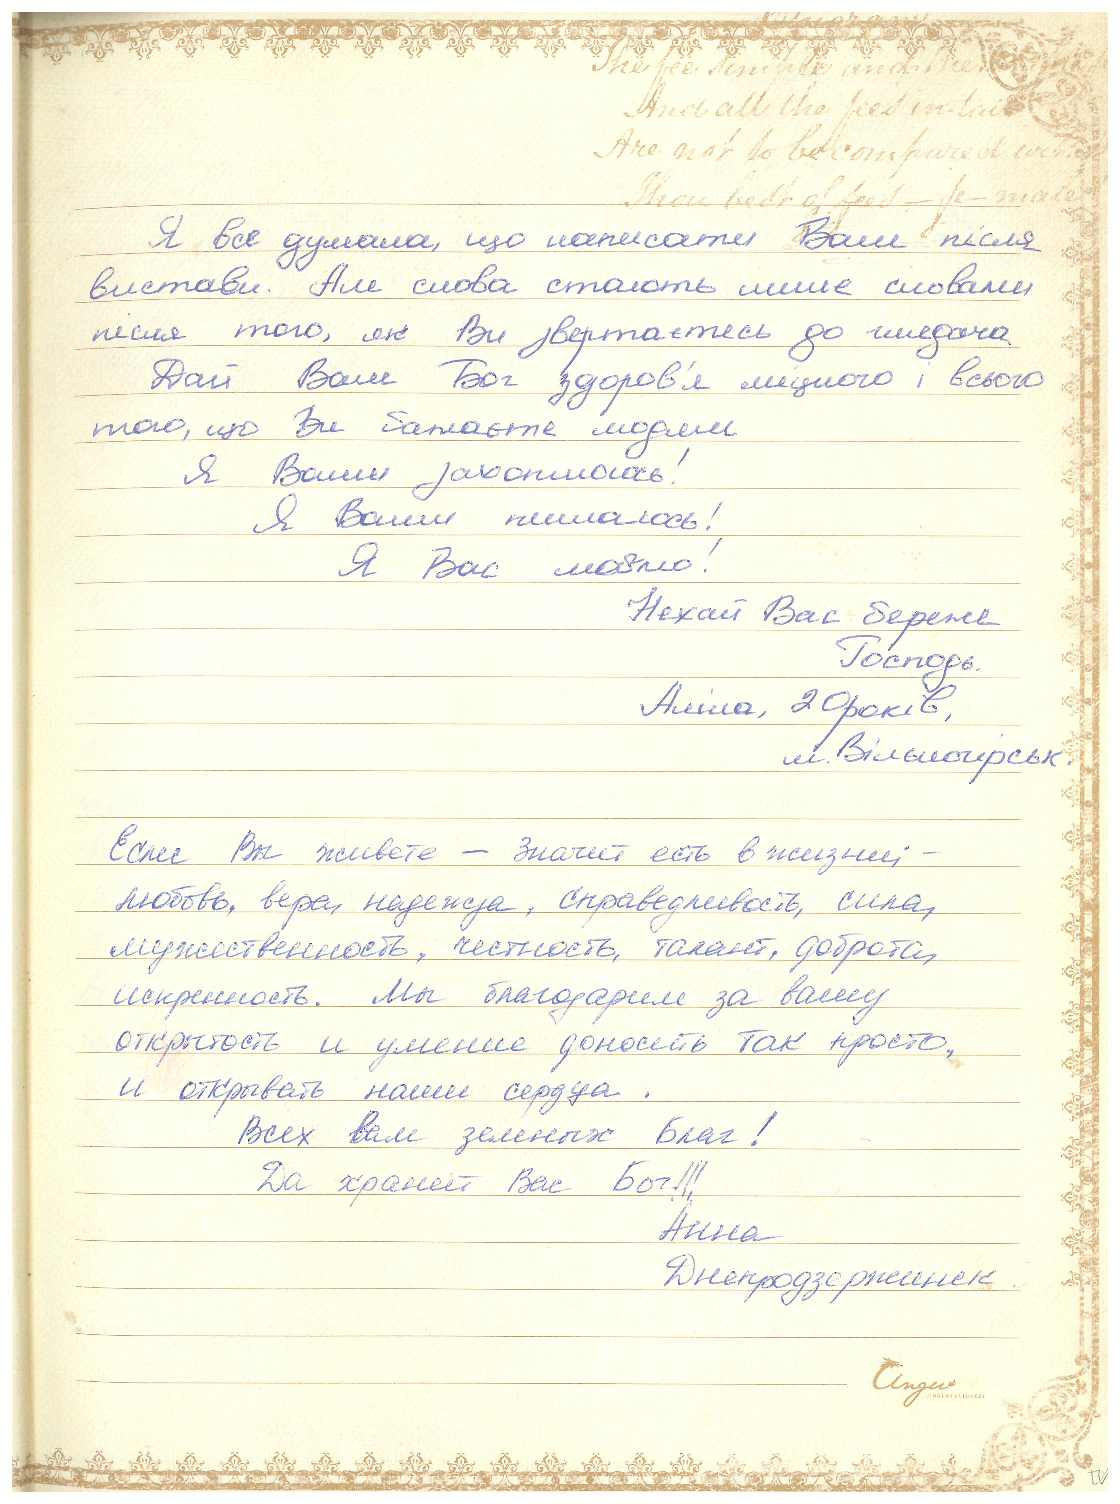 The fee simple and the
And all the fees in-tail
Are not to be compared with
Thou best of fees – fe – male
Я все думала, що написати Вам після
вистави. Але слова стають лише словами
після того, як Ви звертаєтесь до глядача.
Дай Вам Бог здоров'я міцного і всього
того, що Ви бажаєте людям
Я Вами захоплююсь!
Я Вами пишаюсь!
Я Вас люблю!
Нехай Вас береже
Господь.
Аліна, 20 років,
м. Вільногірськ.
Если Вы живете – значит есть в жизни –
любовь, вера, надежда, справедливость, сила,
мужественность, честность, талант, доброта,
искренность. Мы благодарим за вашу
открытость и умение доносить так просто,
и открывать наши сердца.
Всех вам земных благ!
Да хранит Вас Бог!!!
Анна
Днепродзержинск.
Angeo